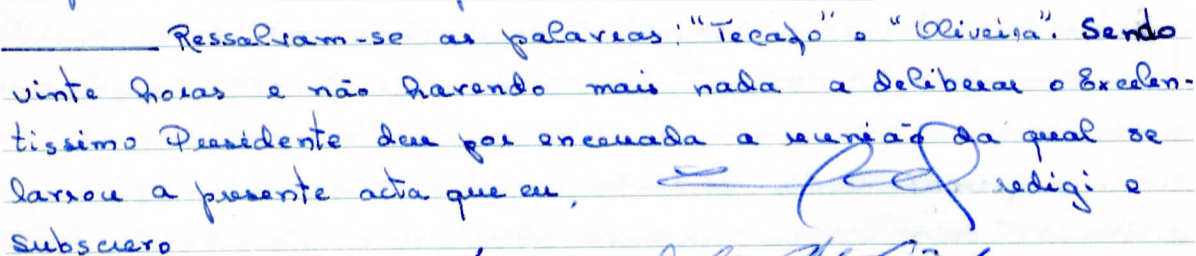 Ressalvam-se as palavras: "Tecação" e "Oliveira". Sendo
vinte horas e não havendo mais nada a deliberar o Excelen-
tissimo Presidente deu por encerrada a reunião da qual se
lavrou a presente acta que eu, redigi e
subscrevo